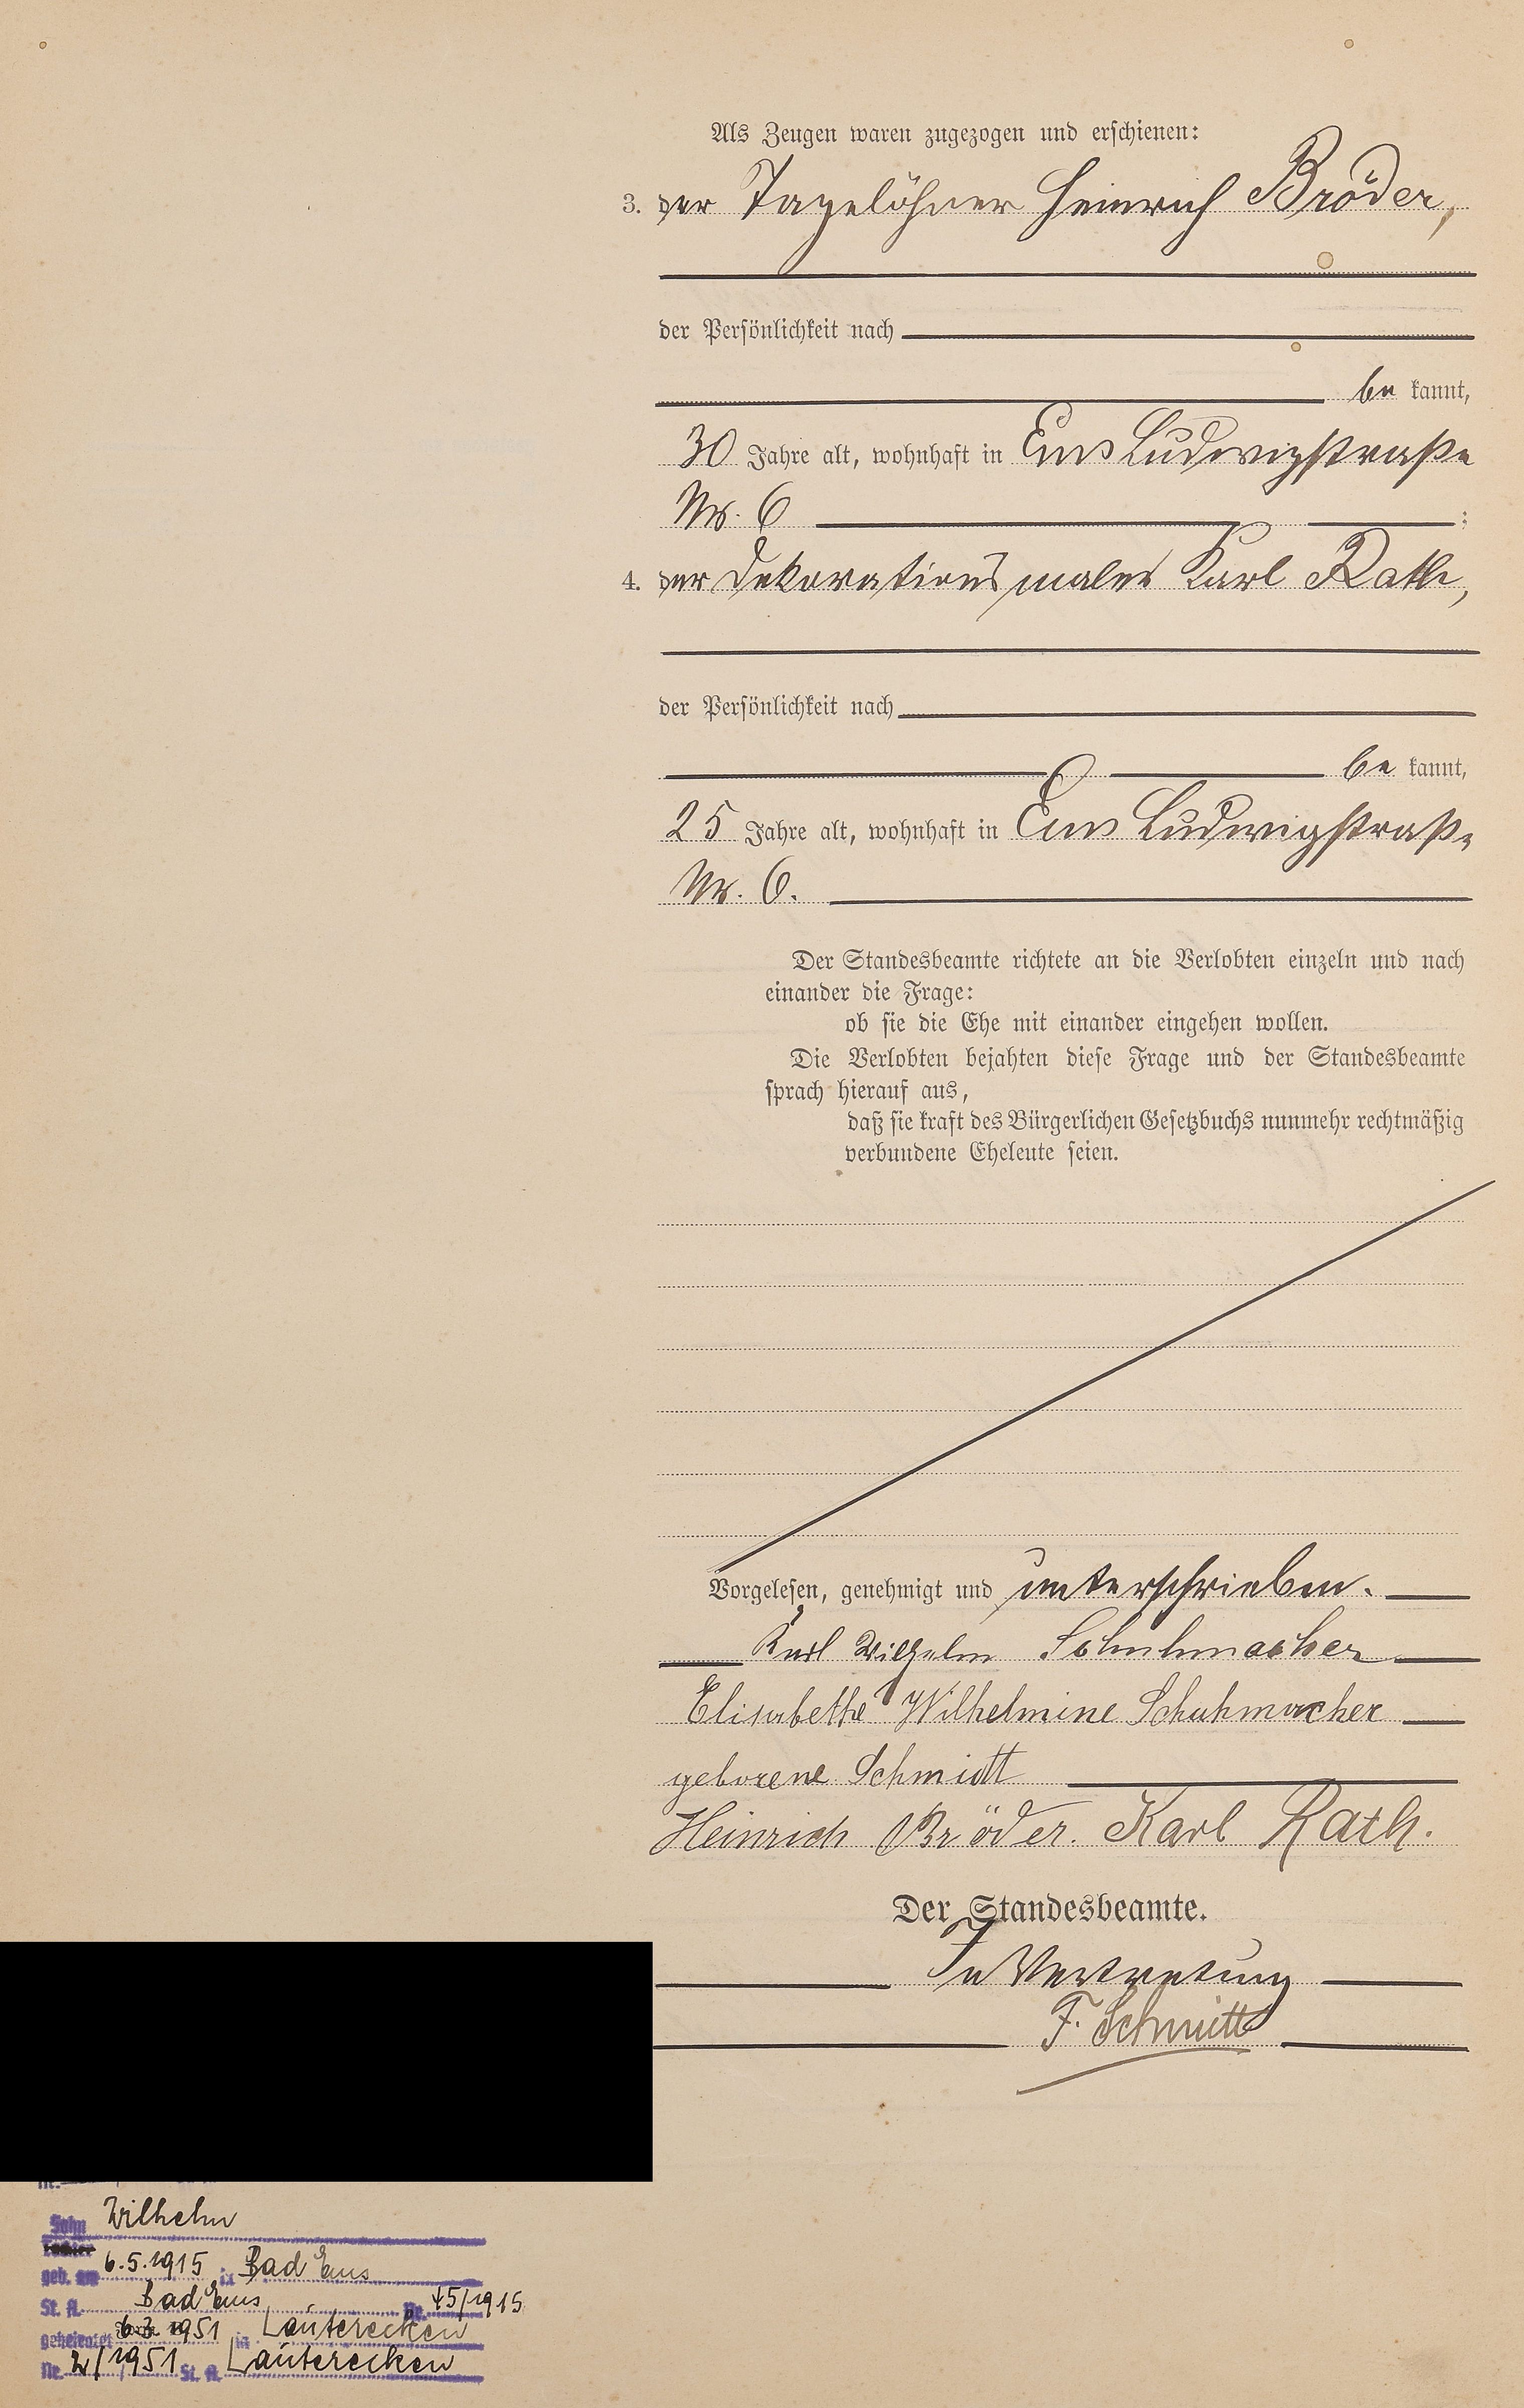 Als Zeugen waren zugezogen und erschienen:
3. der Tagelöhner Heinrich Bröder,
der Persönlichkeit nach
be kannt,
30 Jahre alt, wohnhaft in Ems Ludwigstraße
Nr. 6 ;
4. der Dekorationsmaler Karl Rath,
der Persönlichkeit nach
be kannt,
25 Jahre alt, wohnhaft in Ems Ludwigstraße
Nr. 6.
Der Standesbeamte richtete an die Verlobten einzeln und nach
einander die Frage:
ob sie die Ehe mit einander eingehen wollen.
Die Verlobten bejahten diese Frage und der Standesbeamte
sprach hierauf aus,
daß sie kraft des Bürgerlichen Gesetzbuchs nunmehr rechtmäßig
verbundene Eheleute seien.
Vorgelesen, genehmigt und unterschrieben.
Karl Wilhelm Schuhmacher
Elisabethe Wilhelmine Schuhmacher
geborene Schmidt
Heinrich Bröder. Karl Rath.
Der Standesbeamte.
In Vertretung
F. Schmitt
Sohn Wilhelm
Tochter
geb. am 6.5.1915 in Bad Ems
St. A. Bad Ems Nr. 45/1915
geheiratet 1951 in Lauterecken
Nr. 2/1951 St. A. Lauterecken